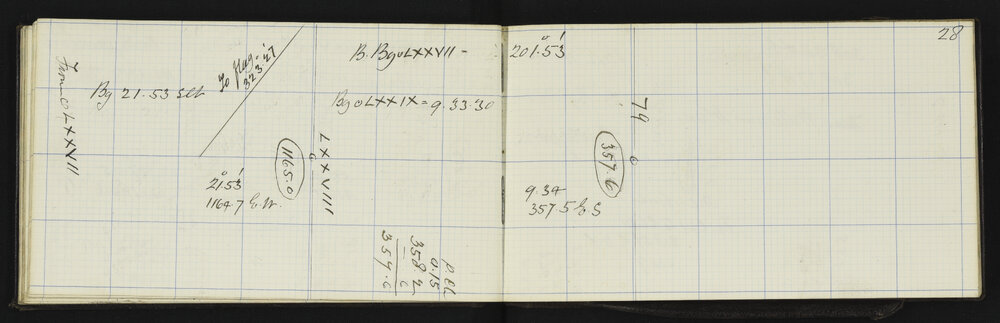 28
To Flag -
323.27
B. Bg o LXXVII -
201.53
Bg 21.53 set
Bg o LXXIX = 9.33.30
From o LXXVII
LXXVIII
1165.0
79
357.6
21.53
1164.7
9.34
357.5
0.15
358 2
6
357.6